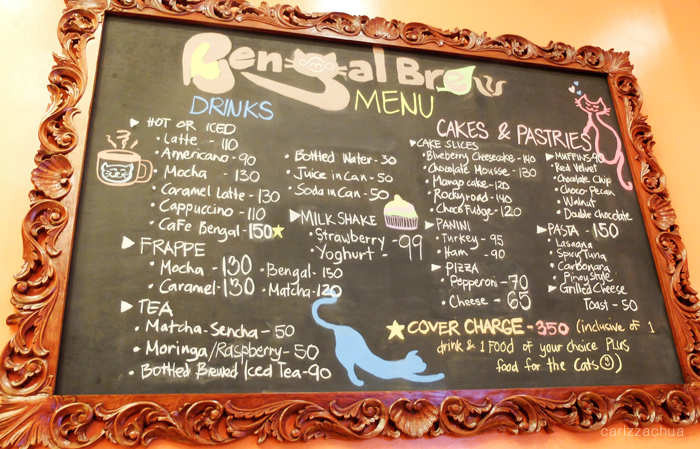 Bengal Brew
DRINKS
MENU
▶ HOT OR ICED
• Latte - 110
• Americano - 90
• Mocha - 130
• Caramel Latte - 130
• Cappuccino - 110
• Cafe Bengal - 150
▶ FRAPPE
• Mocha - 130
• Caramel - 130
• Bengal - 150
• Matcha - 120
▶ TEA
• Matcha-Sencha - 50
• Moringa/Raspberry - 50
• Bottled Brewed Iced Tea - 90
• Bottled Water - 30
• Juice in Can - 50
• Soda in Can - 50
▶ MILK SHAKE
• Strawberry
• Yoghurt - 99
CAKES & PASTRIES
▶ CAKE SLICES
• Blueberry Cheesecake - 140
• Chocolate Mousse - 130
• Mango cake - 120
• Rocky road - 140
• Choco Fudge - 120
▶ PANINI
• Turkey - 95
• Ham - 90
▶ PIZZA
• Pepperoni - 70
• Cheese - 65
▶ MUFFINS - 90
• Red Velvet
• Chocolate Chip
• Choco Pecan
• Walnut
• Double chocolate
▶ PASTA - 150
• Lasagna
• Spicy Tuna
• Carbonara
• Pinoy Style
▶ Grilled Cheese
Toast - 50
★ COVER CHARGE - 350 (inclusive of 1
drink & 1 food of your choice plus
food for the Cats ☺)
carizzachua